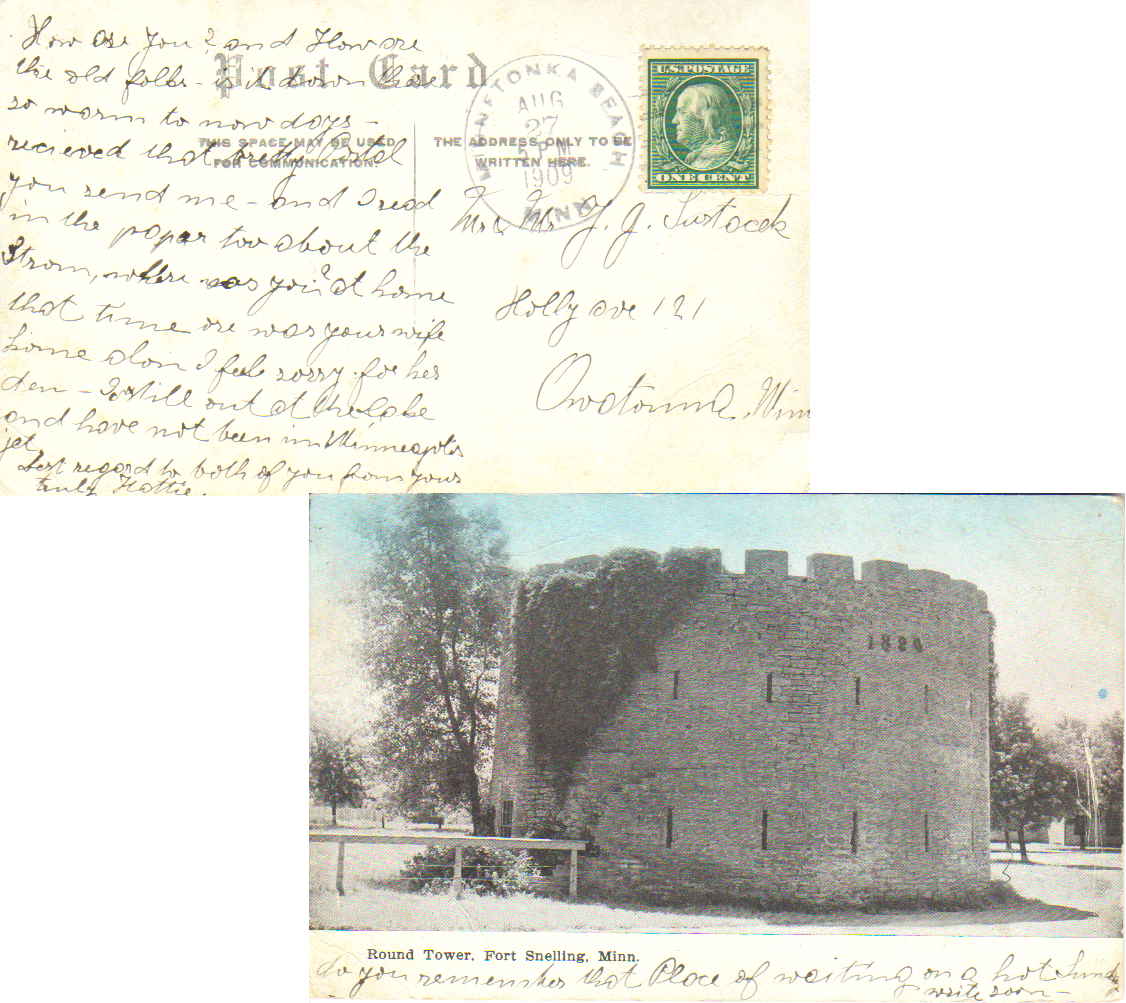 How are you? and How are
the old folks - is it down there
so warm to now days -
recieved that pretty Postal
you send me - and I read
in the paper too about the
Strom, where was you? at home
that time ore was your wife
home alon I feel sorry for her
den - I still out at the lake
and have not been in Minneapolis
jet
Best regard to both of you from yours
truly Hattie.
Post Card
THIS SPACE MAY BE USED
FOR COMMUNICATION.
THE ADDRESS ONLY TO BE
WRITTEN HERE.
MINNETONKA BEACH
AUG
27
5 PM
1909
MINN
U.S. POSTAGE
ONE CENT
Mr & Mrs J. J.
Holly ave 121
Owatonna, Minn
1820
Round Tower, Fort Snelling, Minn.
do you remember that Place of waiting on a hot Sunday
write soon -